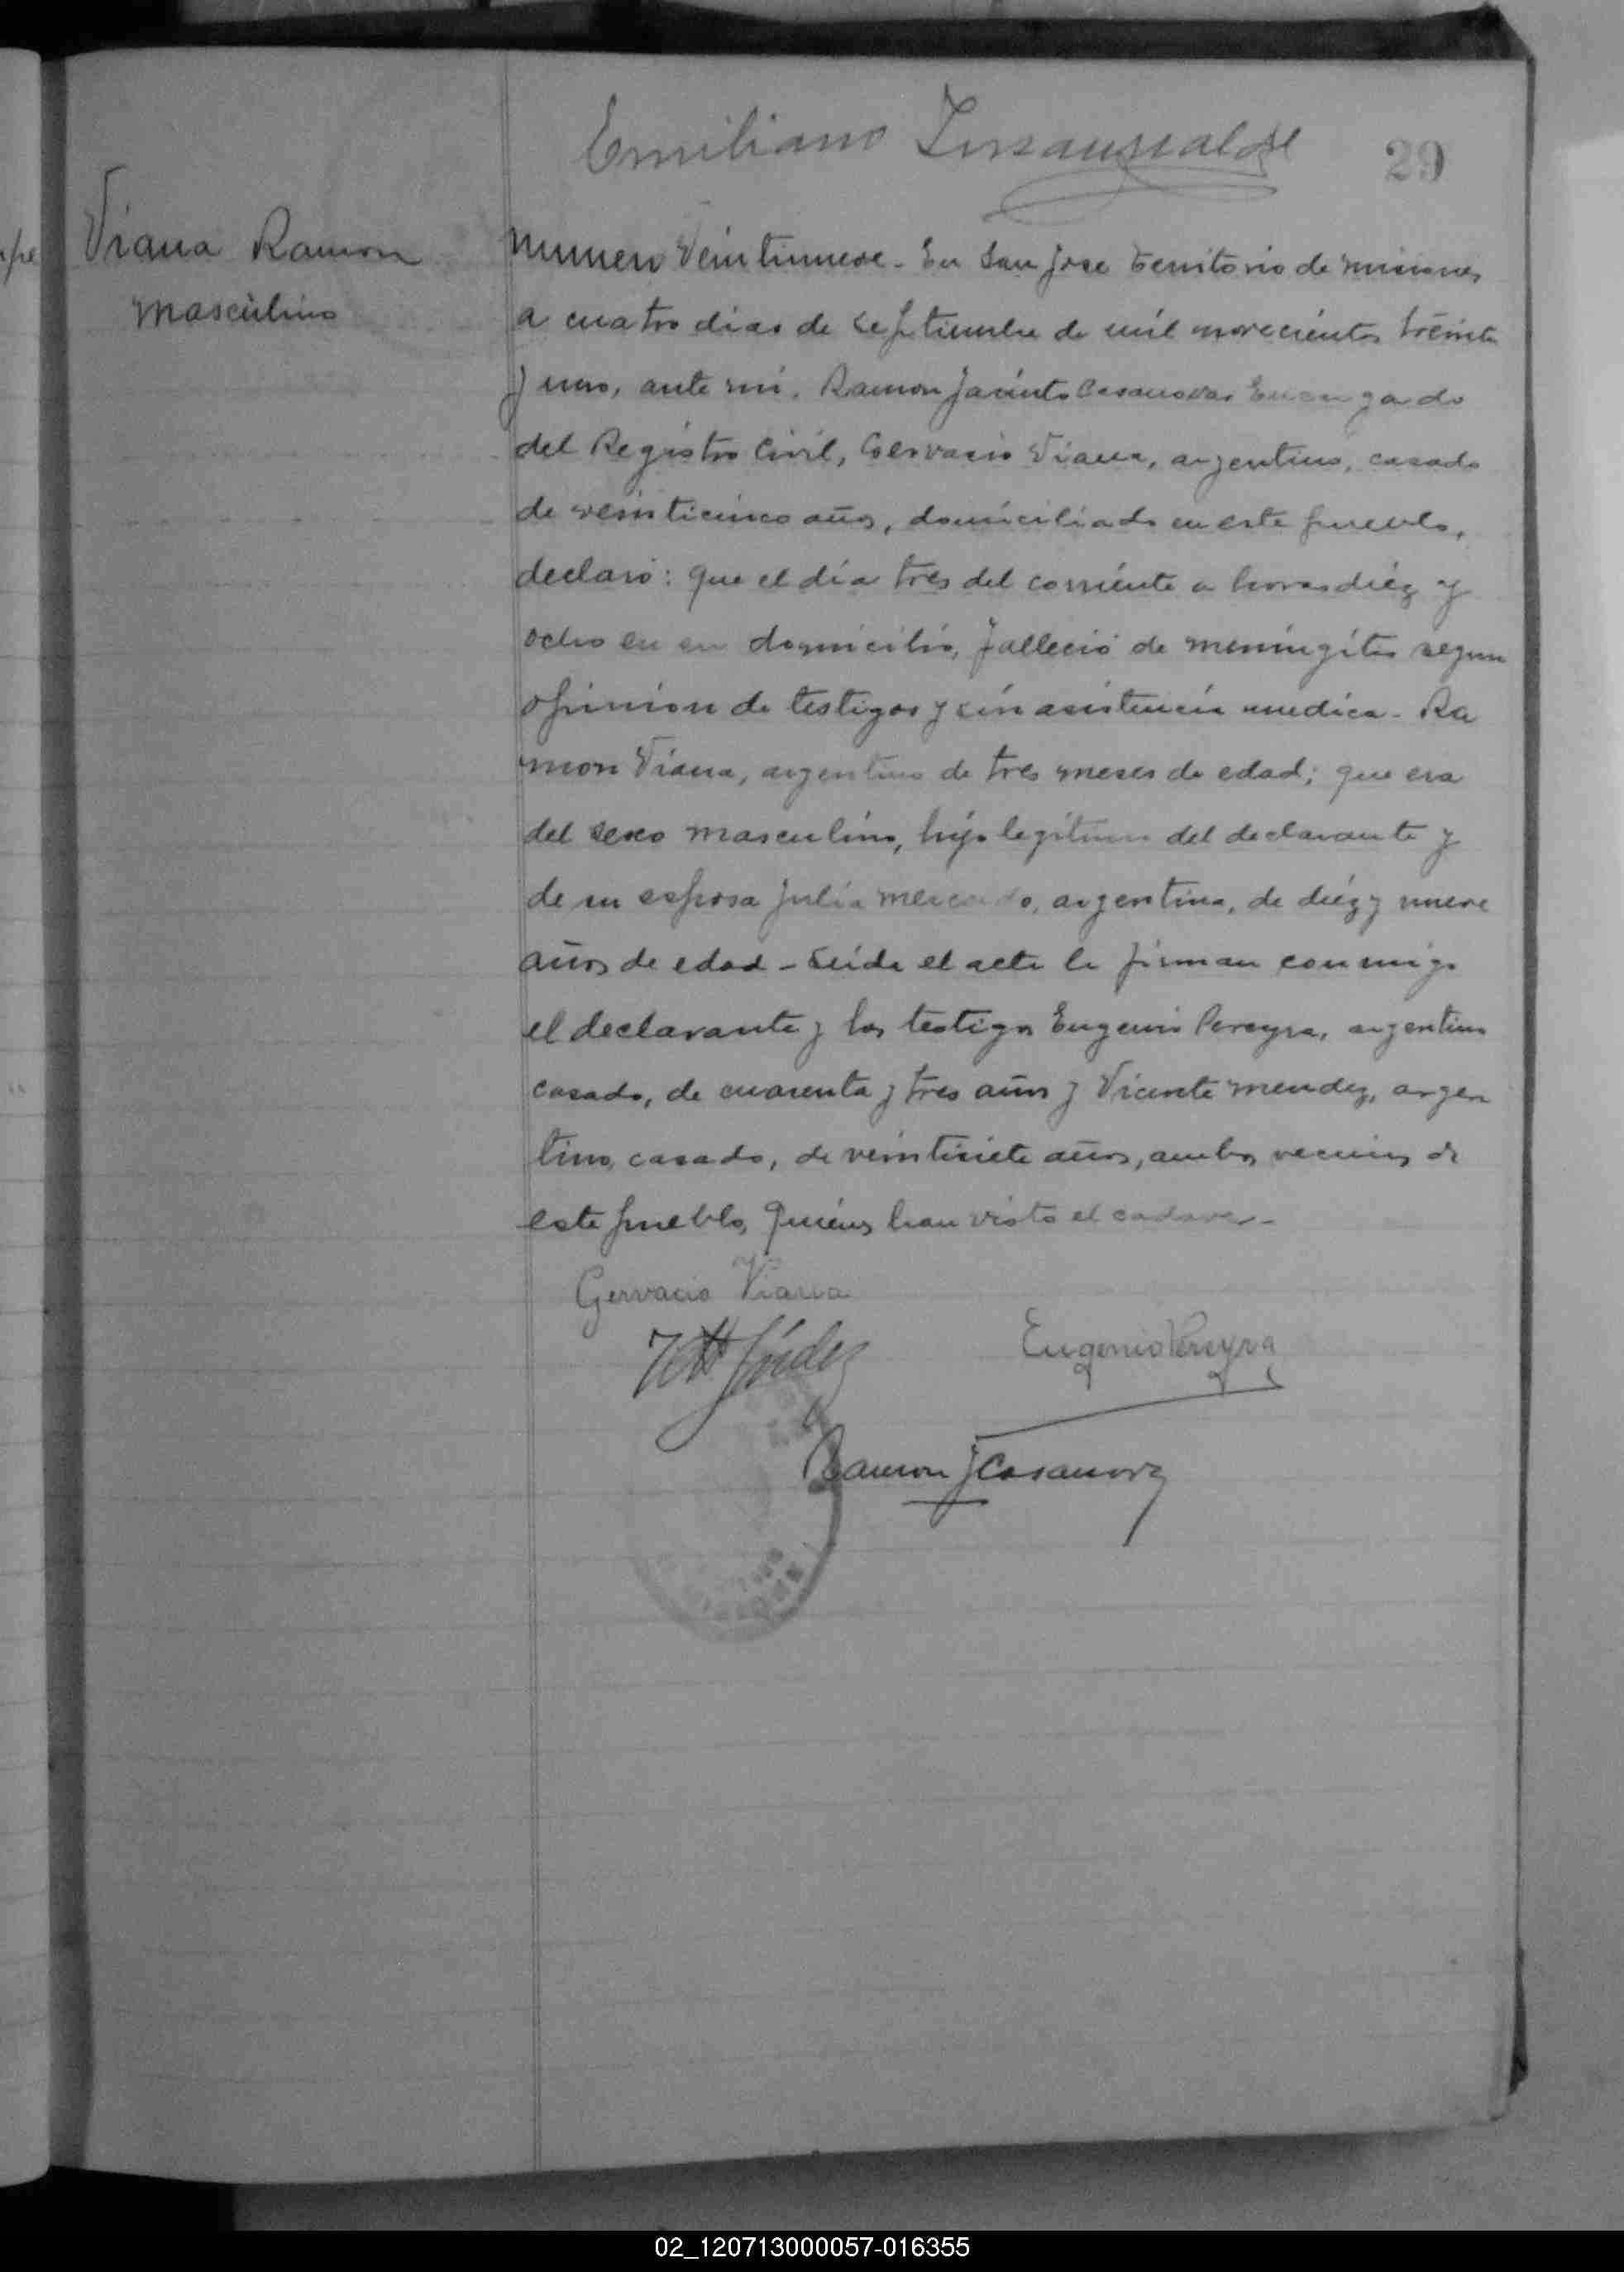 Emiliano Insaurralde
29
Viana Ramon
masculino
numero Veintinueve - En San Jose Territorio de misiones
a cuatro dias de septiembre de mil novecientos treinta
y uno, ante mi. Ramon Jacinto Casanovas Encargado
del Registro Civil, Gervacio Viana, argentino, casado
de veinticinco años, domiciliado en este pueblo,
declaró: que el día tres del corriente a horas diéz y
ocho en su domicilio, falleció de meningitis segun
opinion de testigos y sin asistencia medica - Ra
mon Viana, argentino de tres meses de edad; que era
del sexo masculino, hijo legitimo del declarante y
de su esposa Julia mercado, argentina, de diéz y nueve
años de edad - Leida el acta la firman conmigo
el declarante y los testigos Eugenio Pereyra, argentino
casado, de cuarenta y tres años y Vicente mendez, argen
tino, casado, de veintisiete años, ambos vecinos de
este pueblo, quiénes han visto el cadaver -
Gervacio Viana
Eugenio Pereyra
Ramon J Casanova
02_120713000057-016355